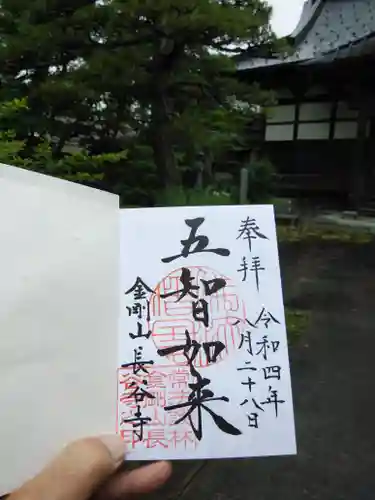 奉拝
令和四年
八月二十八日
五智如来
金剛山長谷寺